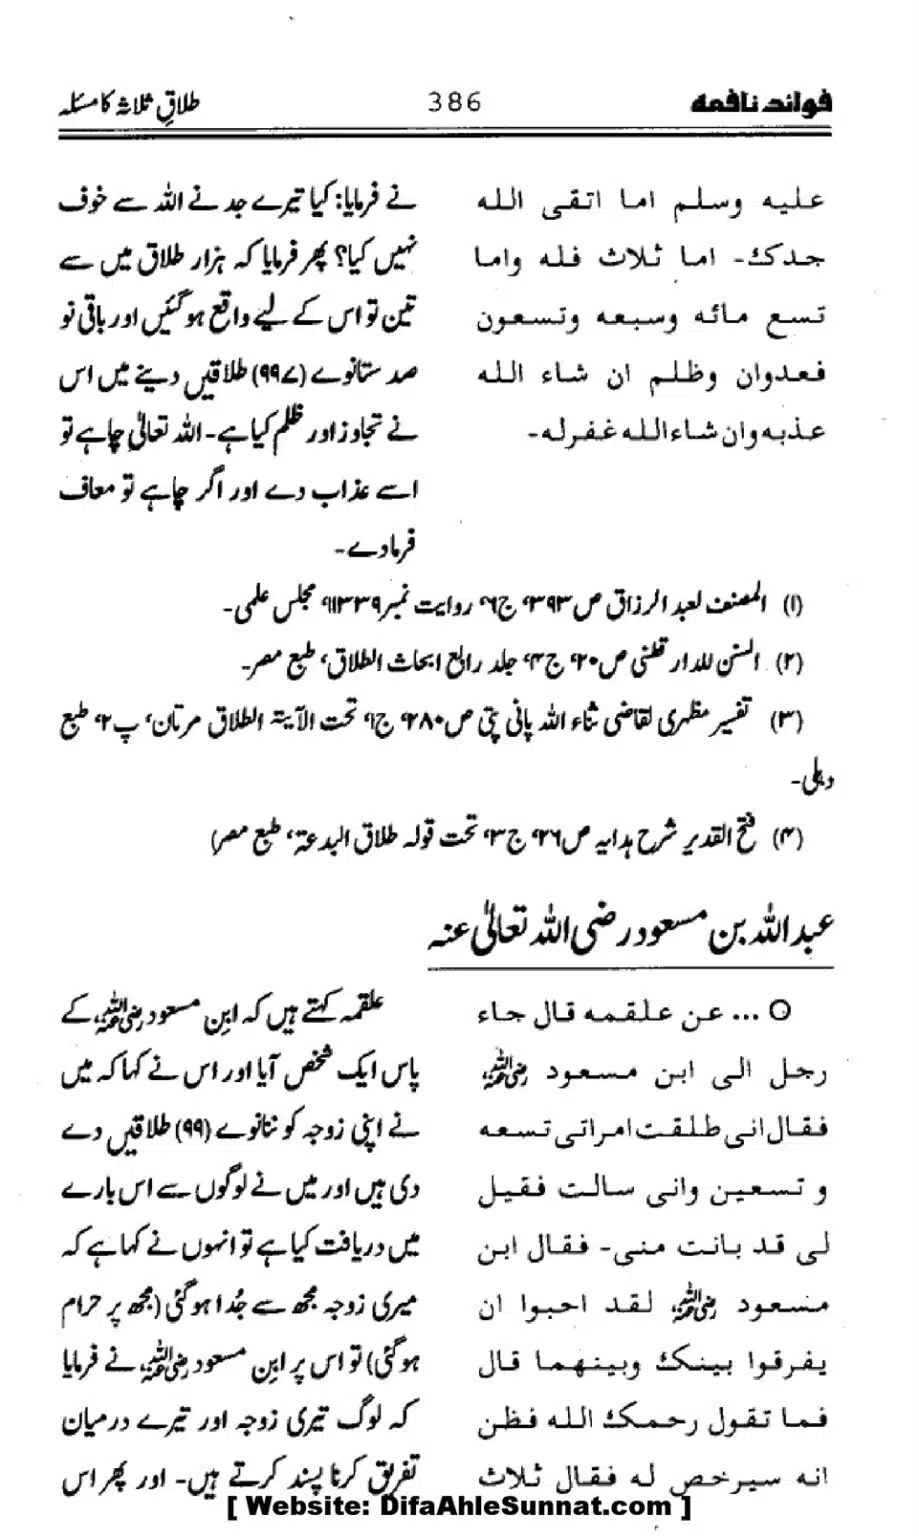 فوائد نافعہ 386 طلاقِ ثلاثہ کا مسئلہ
علیہ وسلم اما اتقی اللہ
جدک۔ اما ثلاث فلہ واما
تسع مائہ وسبعہ وتسعون
فعدوان وظلم ان شاء اللہ
عذبہ وان شاء اللہ غفرلہ۔
نے فرمایا: کیا تیرے جد نے اللہ سے خوف
نہیں کیا؟ پھر فرمایا کہ ہزار طلاق میں سے
تین تو اس کے لیے واقع ہو گئیں اور باقی نو
صد ستانوے (۹۹۷) طلاقیں دینے میں اس
نے تجاوز اور ظلم کیا ہے۔ اللہ تعالیٰ چاہے تو
اسے عذاب دے اور اگر چاہے تو معاف
فرما دے۔
(۱) المصنف لعبد الرزاق ص۳۹۳، ج۶، روایت نمبر۱۱۳۳۹، مجلس علمی۔
(۲) السنن للدار قطنی ص۲۰، ج۴، جلد رابع ابحاث الطلاق، طبع مصر۔
(۳) تفسیر مظہری لقاضی ثناء اللہ پانی پتی ص۲۸۰، ج۱، تحت الآیۃ الطلاق مرتان، پ۲، طبع
دہلی۔
(۴) فتح القدیر شرح ہدایہ ص۲۶، ج۳، تحت قولہ طلاق البدعۃ، طبع مصر)
عبداللہ بن مسعود رضی اللہ تعالیٰ عنہ
○ ... عن علقمہ قال جاء
رجل الی ابن مسعود رضی اللہ عنہ
فقال انی طلقت امراتی تسعہ
و تسعین وانی سالت فقیل
لی قد بانت منی۔ فقال ابن
مسعود رضی اللہ عنہ لقد احبوا ان
یفرقوا بینک وبینہما قال
فما تقول رحمک اللہ فظن
انہ سیرخص لہ فقال ثلاث
علقمہ کہتے ہیں کہ ابن مسعود رضی اللہ عنہ کے
پاس ایک شخص آیا اور اس نے کہا کہ میں
نے اپنی زوجہ کو ننانوے (۹۹) طلاقیں دے
دی ہیں اور میں نے لوگوں سے اس بارے
میں دریافت کیا ہے تو انہوں نے کہا ہے کہ
میری زوجہ مجھ سے جُدا ہو گئی (مجھ پر حرام
ہو گئی) تو اس پر ابن مسعود رضی اللہ عنہ نے فرمایا
کہ لوگ تیری زوجہ اور تیرے درمیان
تفریق کرنا پسند کرتے ہیں۔ اور پھر اس
[ Website: DifaAhleSunnat.com ]